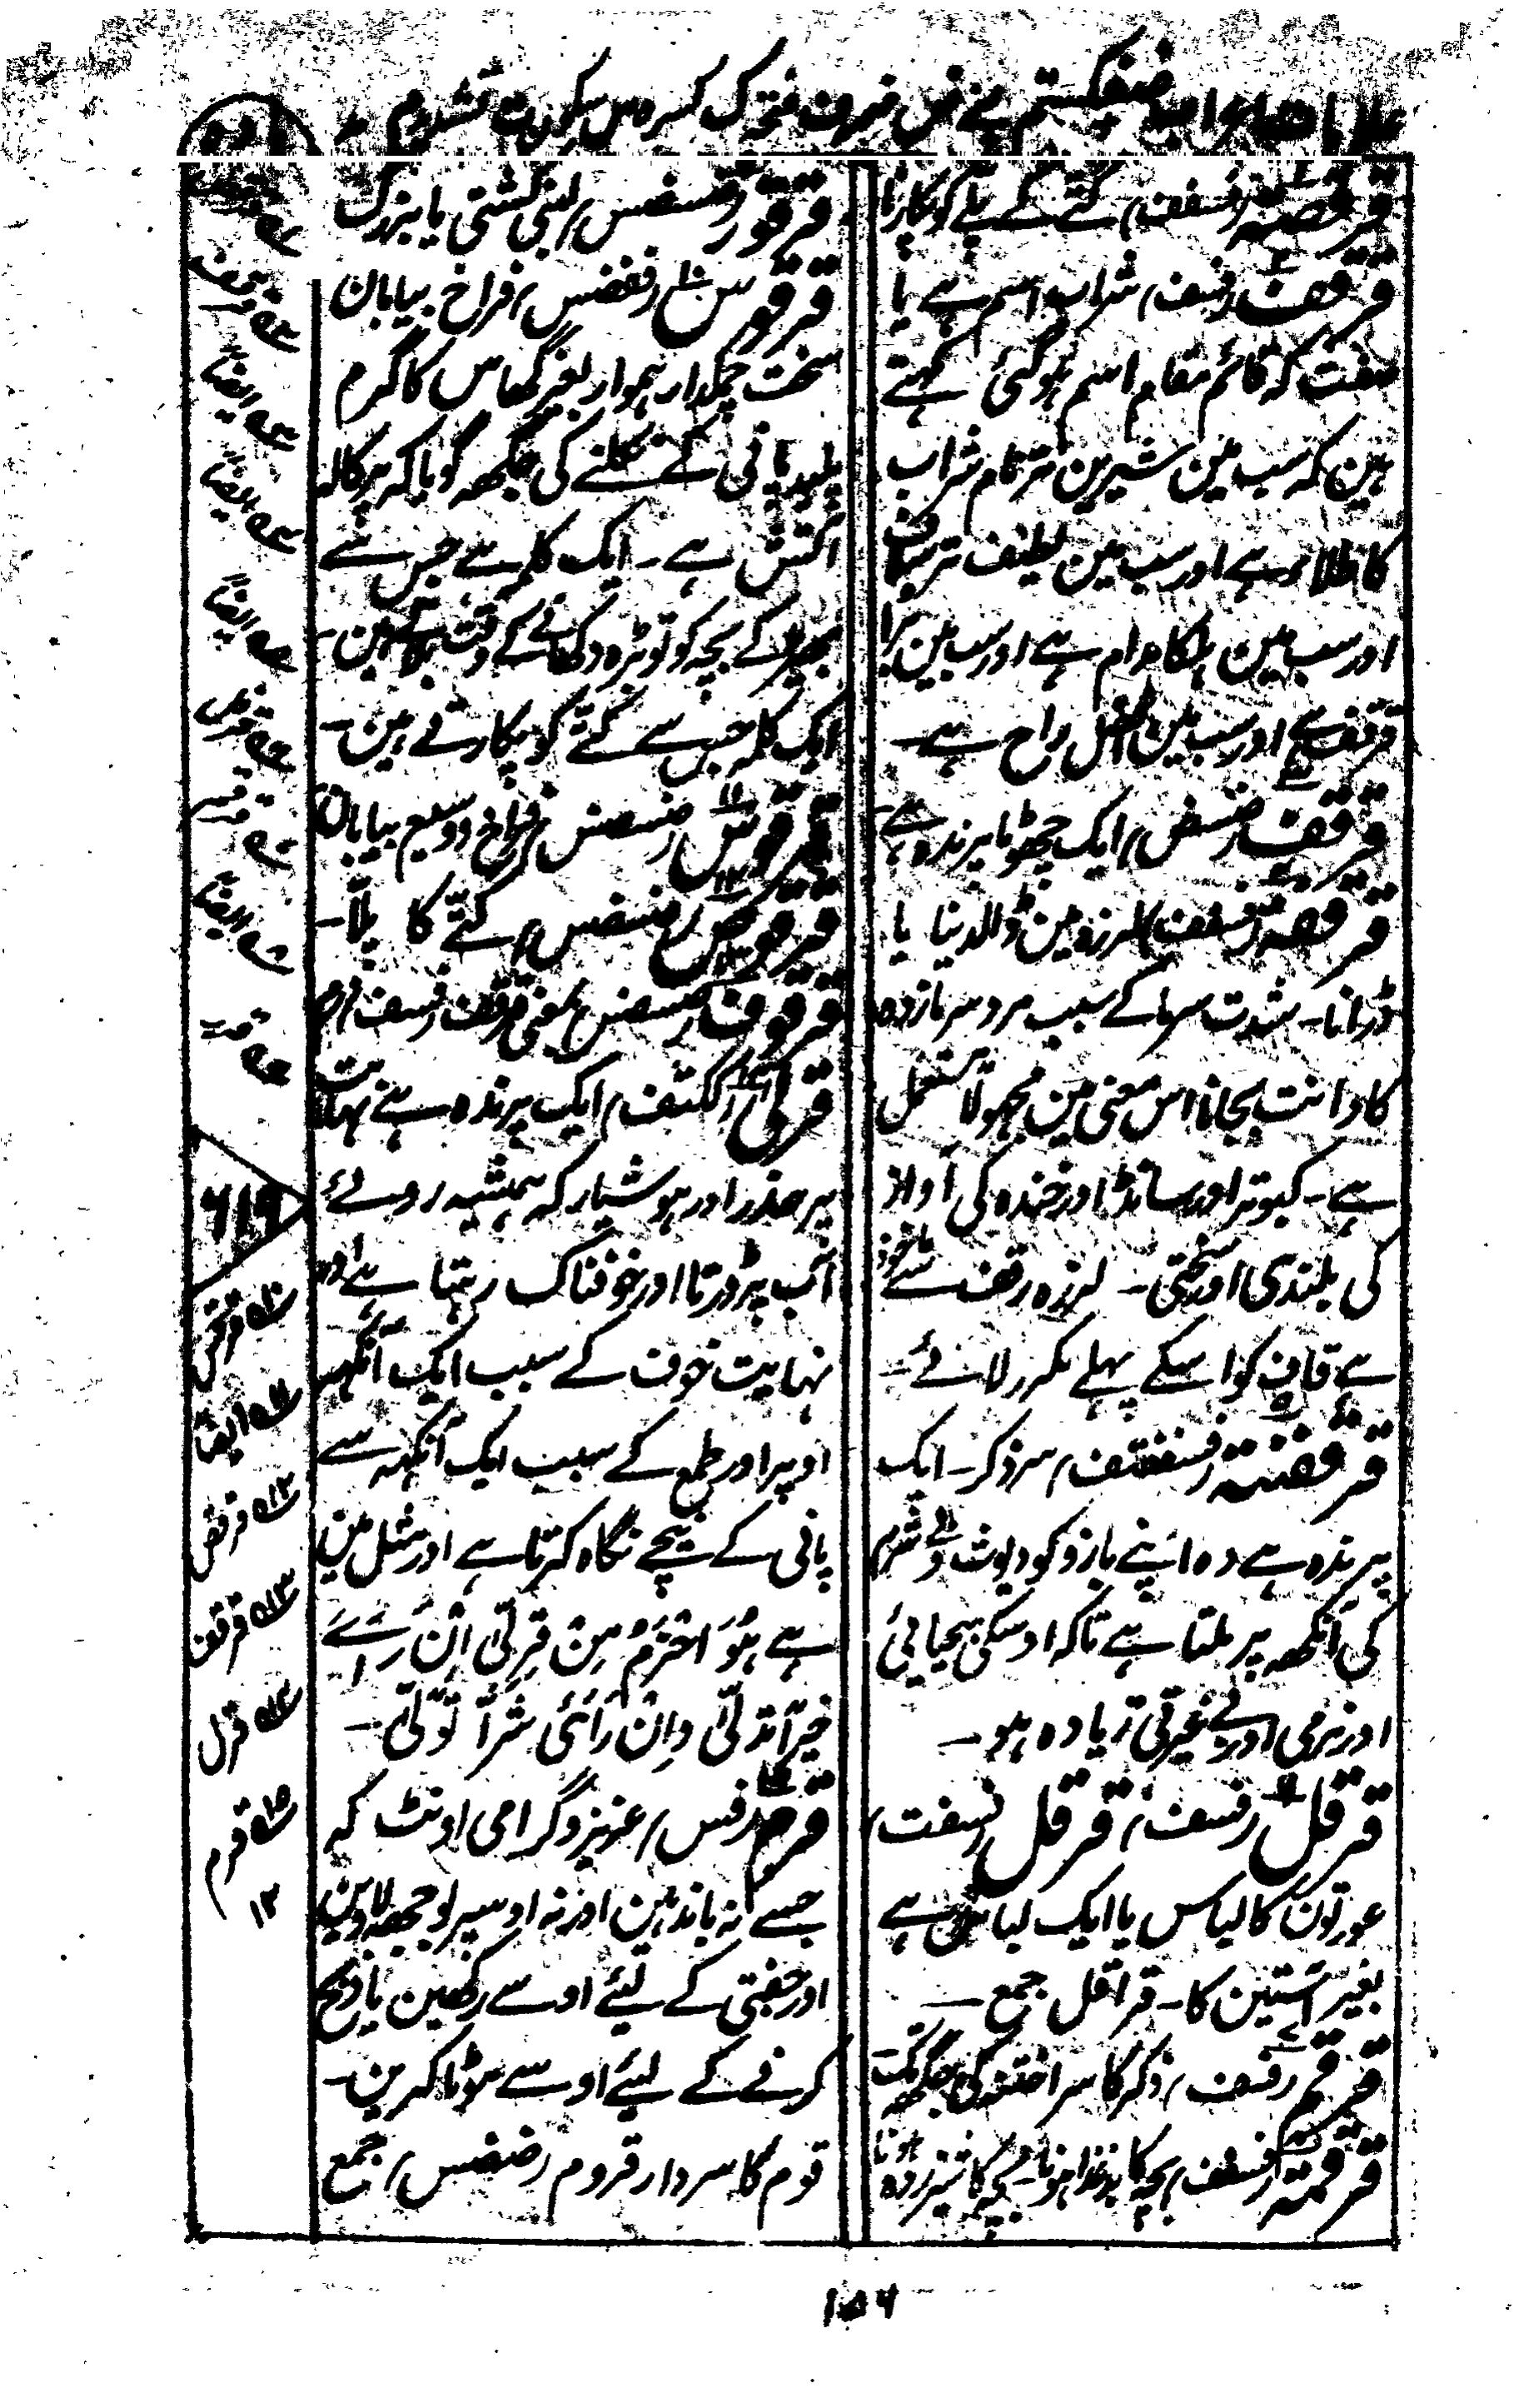 فتحہ ک کسرہ س سکون ت تشدید م
قرقصۃ (فسفف) کتے کے پلے کو پکارنا
قرقف (فسف) شراب کا اسم ہے یا
صفت کہ قائم مقام اسم ہو گئی کہتے
ہین کہ سب مین شیرین تر نام شراب
کا طلا ہے اور سب مین لطیف تر سلاف
اور سب مین ہلکا مدام ہے اور سب مین برا
قرقف ہے اور سب مین افضل راح ہے۔
قرقف (ضسض) ایک چھوٹا پرندہ ہے
قرقفۃ (فسفف) لرزہ مین ڈالدینا یا
ڈرانا۔ شدت سرما کے سبب مرد سرمازدہ
کا دانت بجانا اس معنی مین مجہولاً مستعمل
ہے۔ کبوتر اور سانڈ اور خندہ کی آواز
کی بلندی اور سختی۔ لرزہ رقف سے ماخوذ
ہے قاف کو اسکے پہلے مکرر لائے۔
قرقفنۃ (فسففتف) سر ذکر۔ ایک
پرندہ ہے وہ اپنے بازو کو دیوث وبے شرم
کی آنکھ پر ملتا ہے تاکہ اوسکی بیحیائی
اور نرمی اور بے غیرتی زیادہ ہو۔
قرقل (فسف) قرقل (فسفت)
عورتون کا لباس یا ایک لباس ہے
بغیر آستین کا۔ قراقل جمع۔
قرقم (فسف) ذکر کا سر اختنہ کی جگہ تک
قرقمۃ (فسفف) بچہ کا بدغذا ہونا۔ بچہ کا شیر زدہ ہونا
قرقور (ضسضس) لنبی کشتی یا بزرگ
قرقوس (ففضس) فراخ بیابان
سخت چمکدار ہموار بغیر گھاس کا گرم
پلید پانی کے نکلنے کی جگھہ گویا کہ پرکالہ
آتش ہے۔ ایک کلمہ ہے جس سے
بھیڑ کے بچہ کو توبڑہ دکھانے کے وقت بلاتے ہین۔
ایک کلمہ جس سے کتے کو پکارتے ہین۔
قرقوش (ضسضس) فراخ و وسیع بیابان
قرقوص (ضسضس) کتے کا پلا۔
قرقوف (ضسضس) بمعنی قرقف (فسف)
قرلی (ککتف) ایک پرندہ ہے نہایت
پر حذر اور ہوشیار کہ ہمیشہ روئے
آب پر ڈرتا اور خوفناک رہتا ہے اور
نہایت خوف کے سبب ایک آنکھہ سے
اوپر اور طمع کے سبب ایک آنکھہ سے
پانی کے نیچے نگاہ کرتا ہے اور مثل مین
ہے ہُوَ احْزَمُ مِنْ قِرِلّی اِنْ رَاے
خیرًا تدلّی واِنْ رَائی شرًّا تَوَلّی۔
قرم (فس) عزیز و گرامی اونٹ کہ
جسے نہ باندھین اور نہ اوسپر بوجھہ لادین
اور جفتی کے لیئے اوسے رکھین یا ذبح
کرنے کے لیئے اوسے موٹا کرین۔
قوم کا سردار قروم (ضضس) جمع
ایضاً
ایضاً
ایضاً
ایضاً
۶۱۹
۱۰ قرقس
۱۱ ایضاً
۱۲ قرقص
۱۳ قرقف
۱۴ قرل
۱۵ قرم
۱۲
۱۵۶